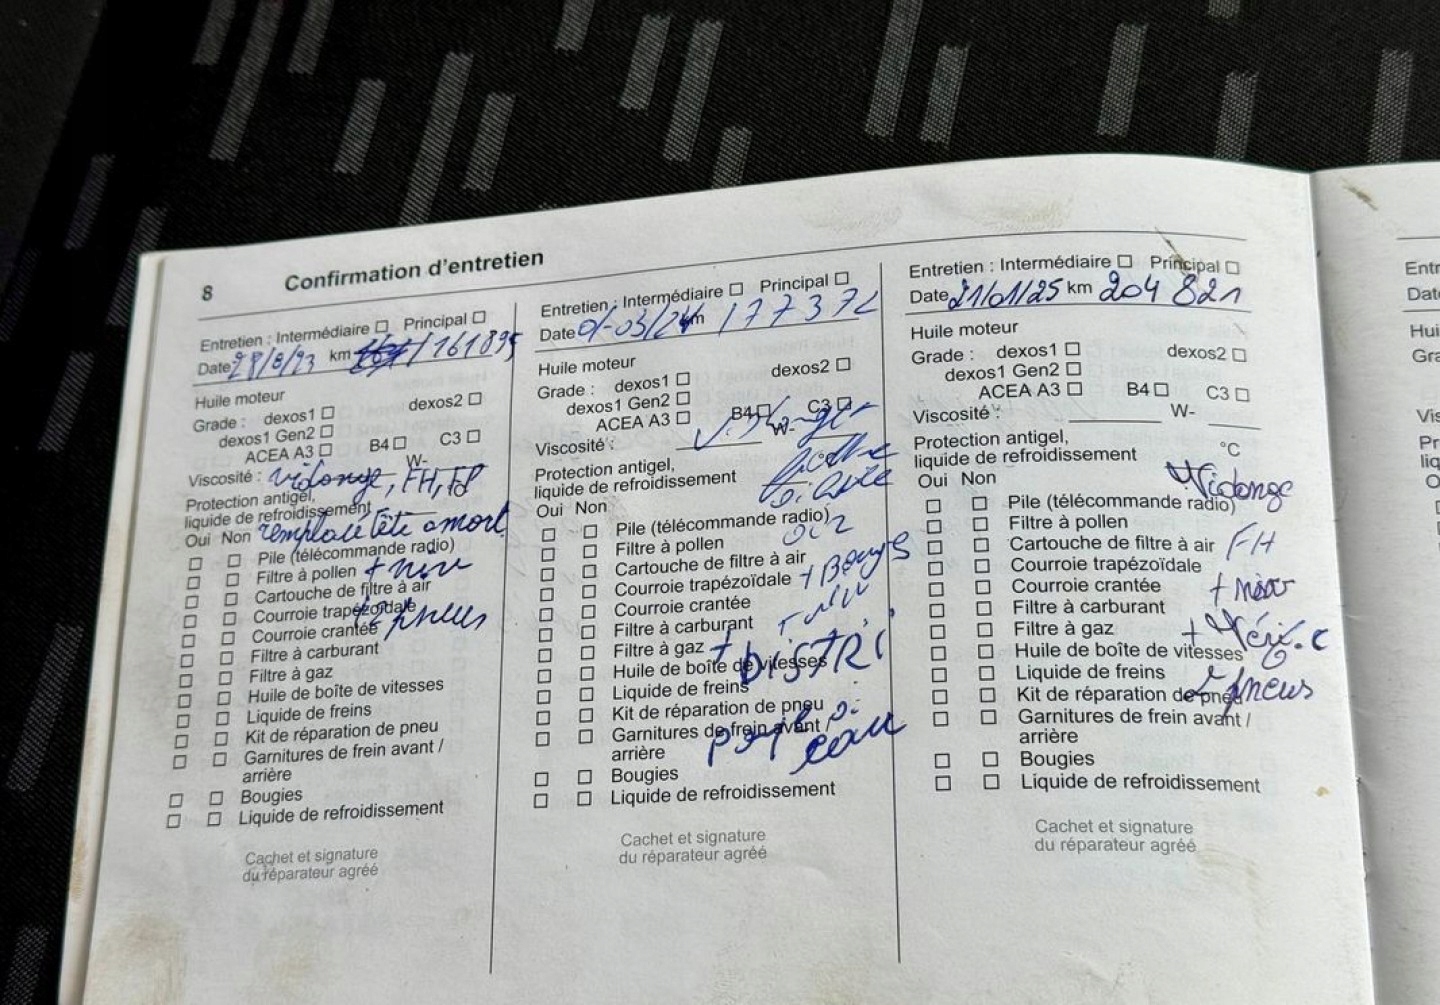 8 Confirmation d'entretien
Entretien : Intermédiaire Principal
Date 28/8/23 km 161895
Huile moteur
Grade : dexos1 dexos2
dexos1 Gen2
ACEA A3 B4 C3
Viscosité : W-
vidange, FH, FP
Protection antigel,
liquide de refroidissement
Oui Non remplacé tête amort
Pile (télécommande radio)
Filtre à pollen + niv
Cartouche de filtre à air
Courroie trapézoïdale
+ 2 pneus
Courroie crantée
Filtre à carburant
Filtre à gaz
Huile de boîte de vitesses
Liquide de freins
Kit de réparation de pneu
Garnitures de frein avant /
arrière
Bougies
Liquide de refroidissement
Cachet et signature
du réparateur agréé
Entretien : Intermédiaire Principal
Date 01-03/24 km 177372
Huile moteur
Grade : dexos1 dexos2
dexos1 Gen2
ACEA A3 B4 C3
Viscosité : W-
Protection antigel,
liquide de refroidissement
Oui Non
Pile (télécommande radio)
Filtre à pollen
Cartouche de filtre à air
Courroie trapézoïdale + Bougs
Courroie crantée
Filtre à carburant + niv
Filtre à gaz + DISTRI
Huile de boîte de vitesses
Liquide de freins
Kit de réparation de pneu
Garnitures de frein avant /
arrière
eau
Bougies
Liquide de refroidissement
Cachet et signature
du réparateur agréé
Entretien : Intermédiaire Principal
Date 21/01/25 km 204 821
Huile moteur
Grade : dexos1 dexos2
dexos1 Gen2
ACEA A3 B4 C3
Viscosité : W-
Protection antigel, °C
liquide de refroidissement
Oui Non Vidange
Pile (télécommande radio)
Filtre à pollen
Cartouche de filtre à air FH
Courroie trapézoïdale
Courroie crantée + niv
Filtre à carburant
Filtre à gaz
Huile de boîte de vitesses
Liquide de freins
Kit de réparation de pneu 2 pneus
Garnitures de frein avant /
arrière
Bougies
Liquide de refroidissement
Cachet et signature
du réparateur agréé
Entr
Date
Hui
Gra
Vis
Pr
liq
O